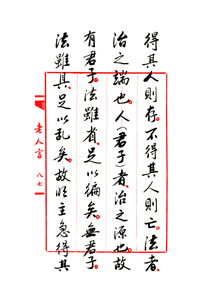 得其人則存。不得其人則亡。法者、
治之端也。人(君子)者、治之源也。故
有君子。法雖省、足以徧矣。無君子。
法雖具。足以亂矣。故明主急得其
老人言 八七